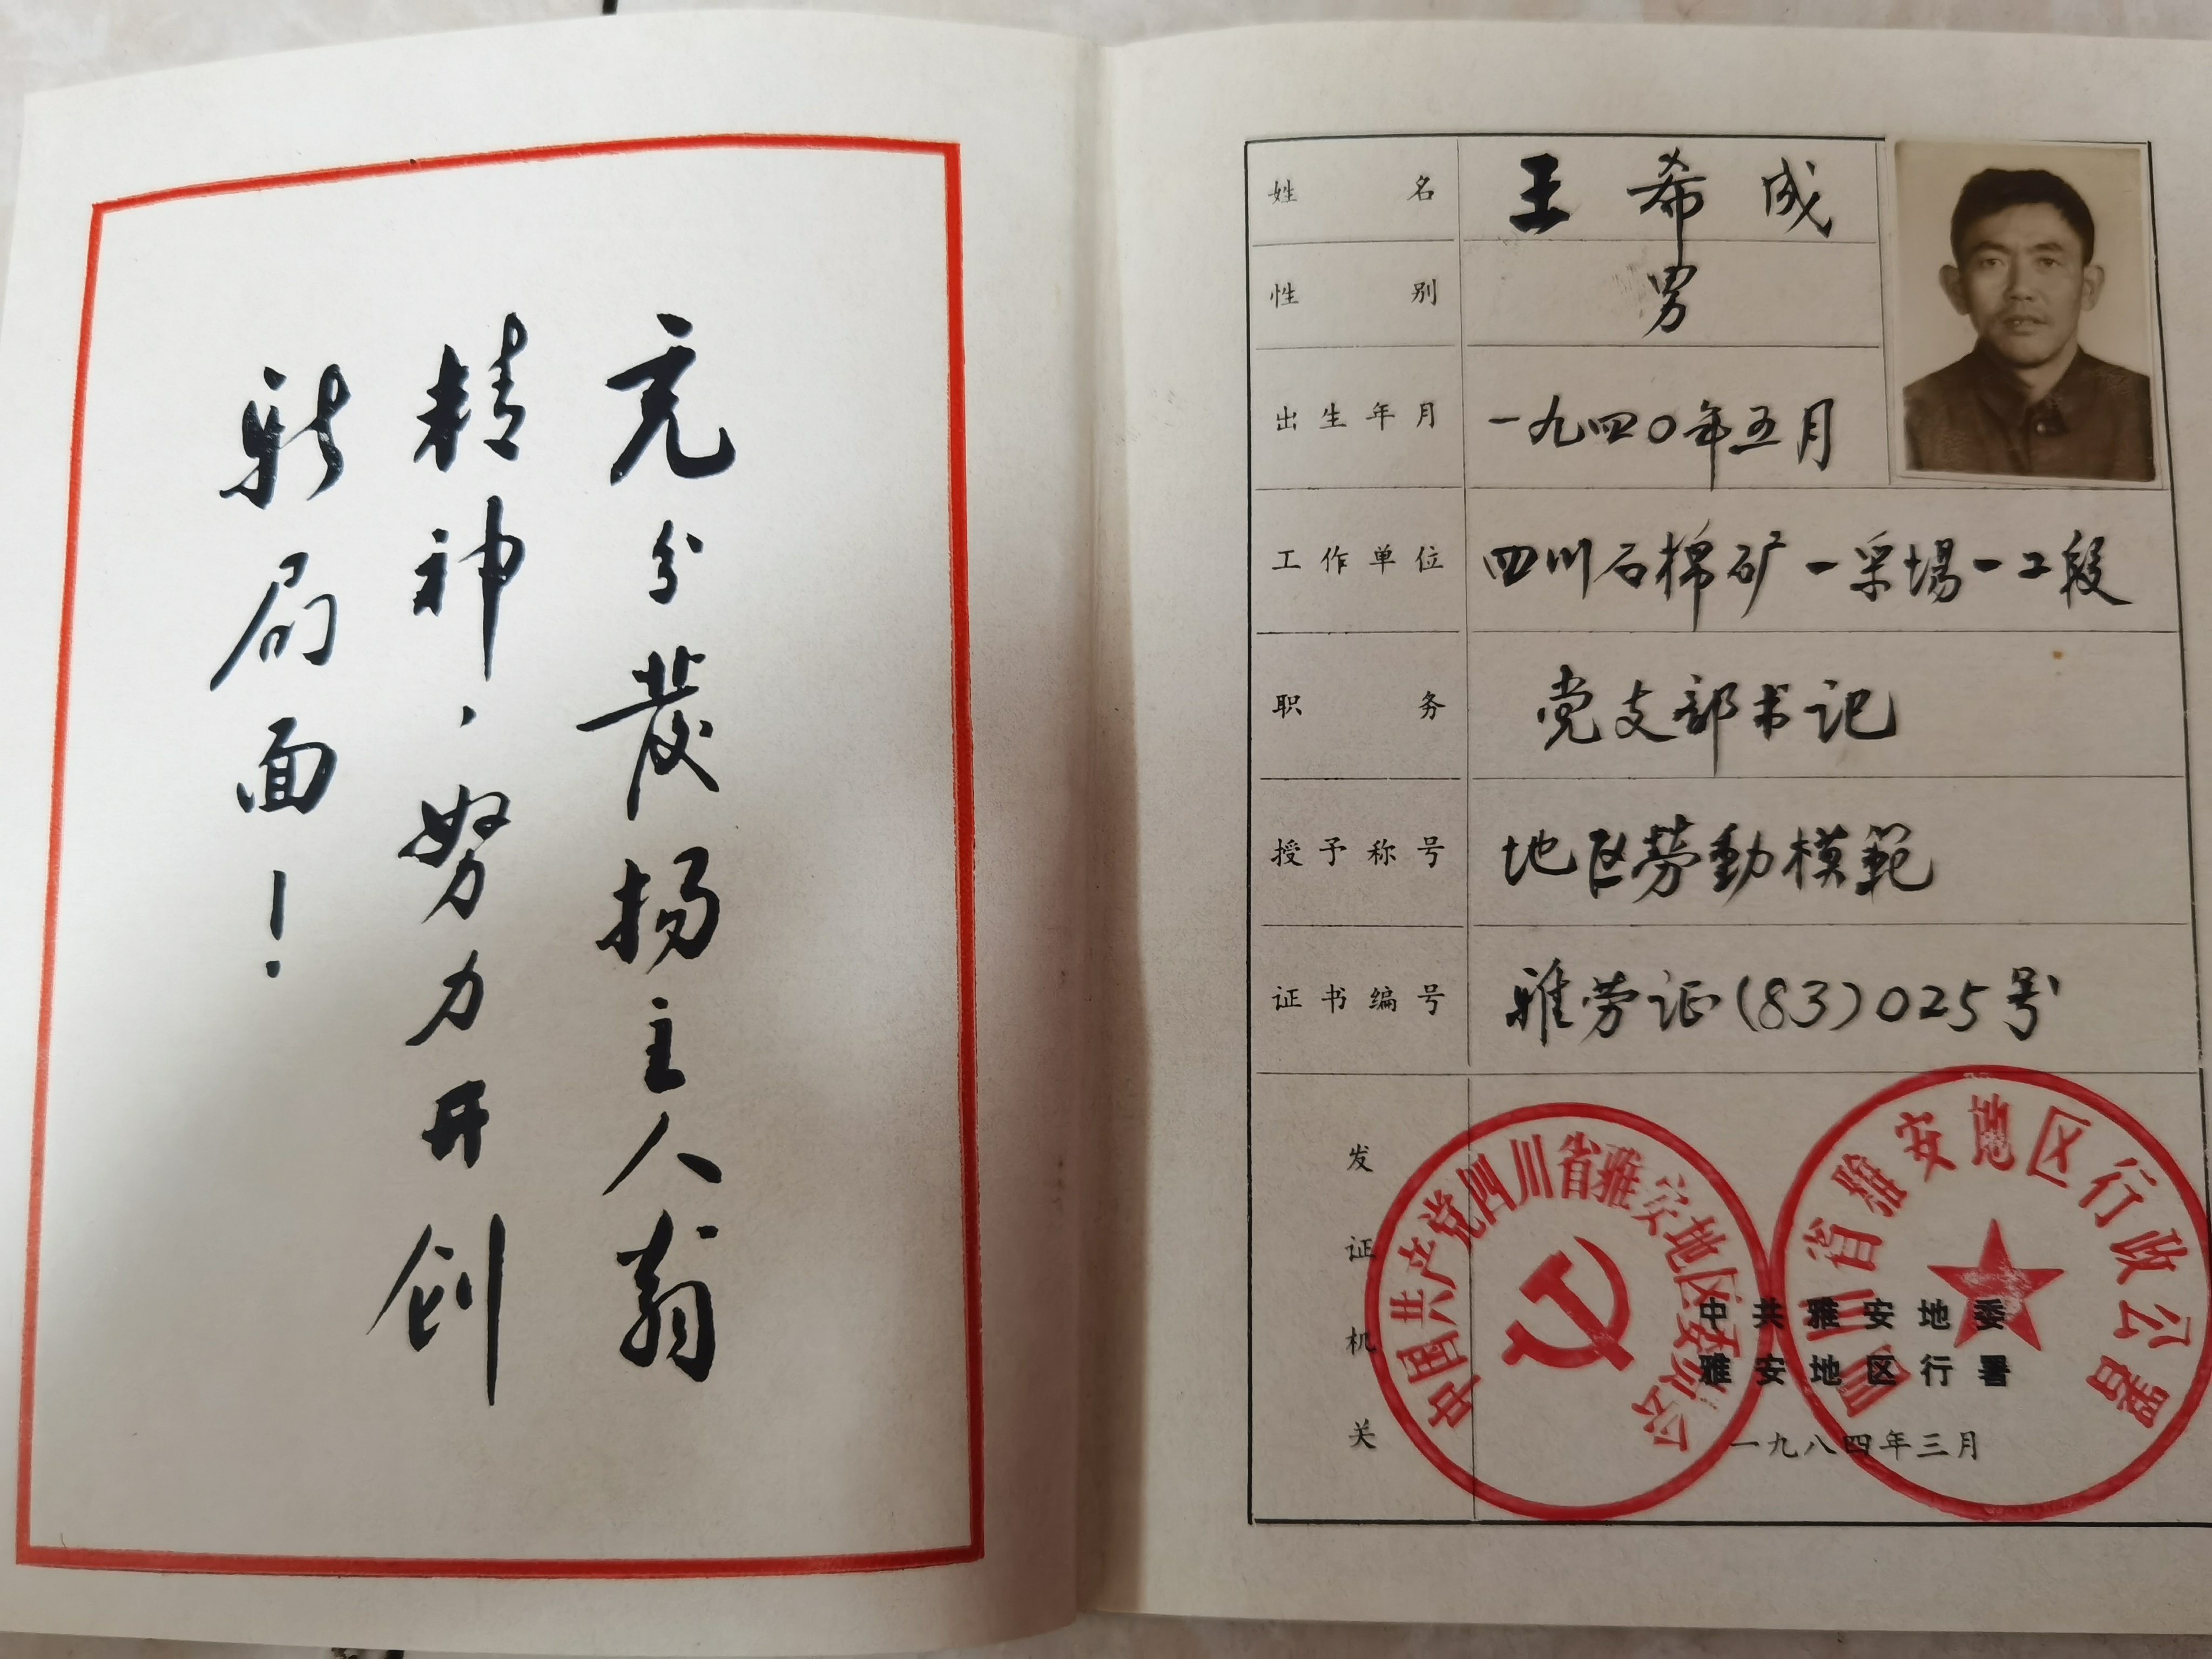 充分發扬主人翁
精神，努力开创
新局面！
姓名 王希成
性别 男
出生年月 一九四〇年五月
工作单位 四川石棉矿一采場一工段
职务 党支部书记
授予称号 地区劳動模範
证书编号 雅劳证(83)025号
发证机关
中国共产党四川省雅安地区委员会
四川省雅安地区行政公署
中共雅安地委
雅安地区行署
一九八四年三月